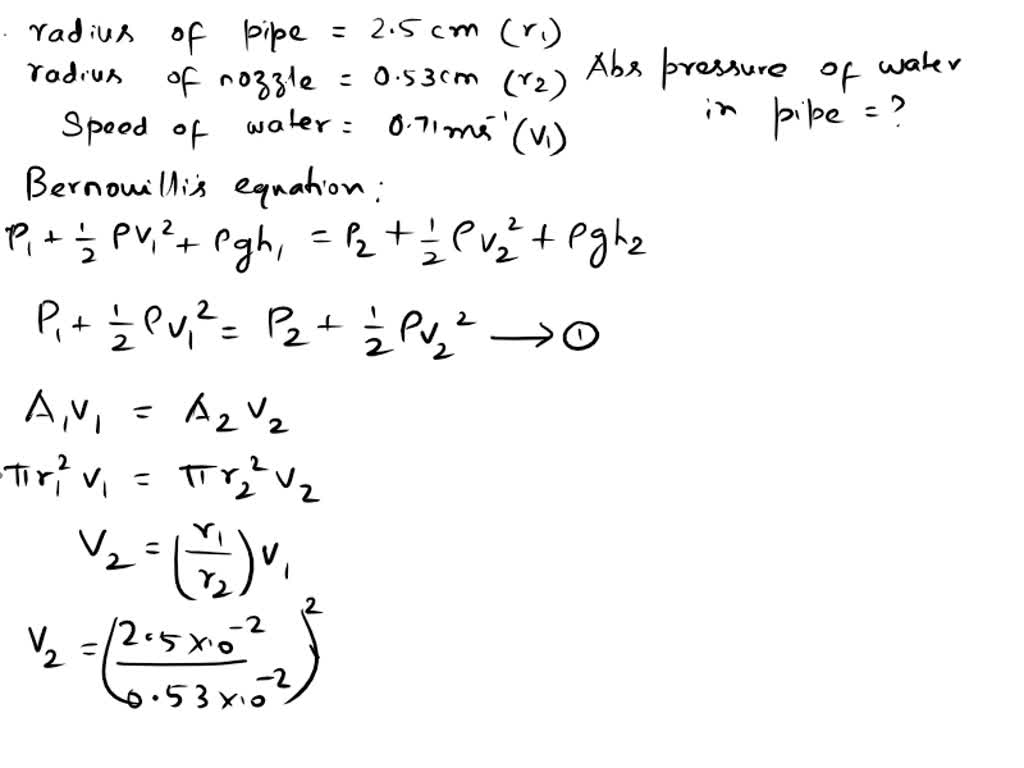 radius of pipe = 2.5 cm (r₁)
radius of nozzle = 0.53cm (r₂)
Speed of water = 0.71ms⁻¹ (V₁)
Abs pressure of water
in pipe = ?
Bernouillis equation:
P₁ + ½ ρV₁² + ρgh₁ = P₂ + ½ ρV₂² + ρgh₂
P₁ + ½ ρV₁² = P₂ + ½ ρV₂² → ①
A₁V₁ = A₂V₂
πr₁² V₁ = πr₂² V₂
V₂ = (r₁/r₂) V₁
V₂ = (2.5×10⁻²/0.53×10⁻²)²